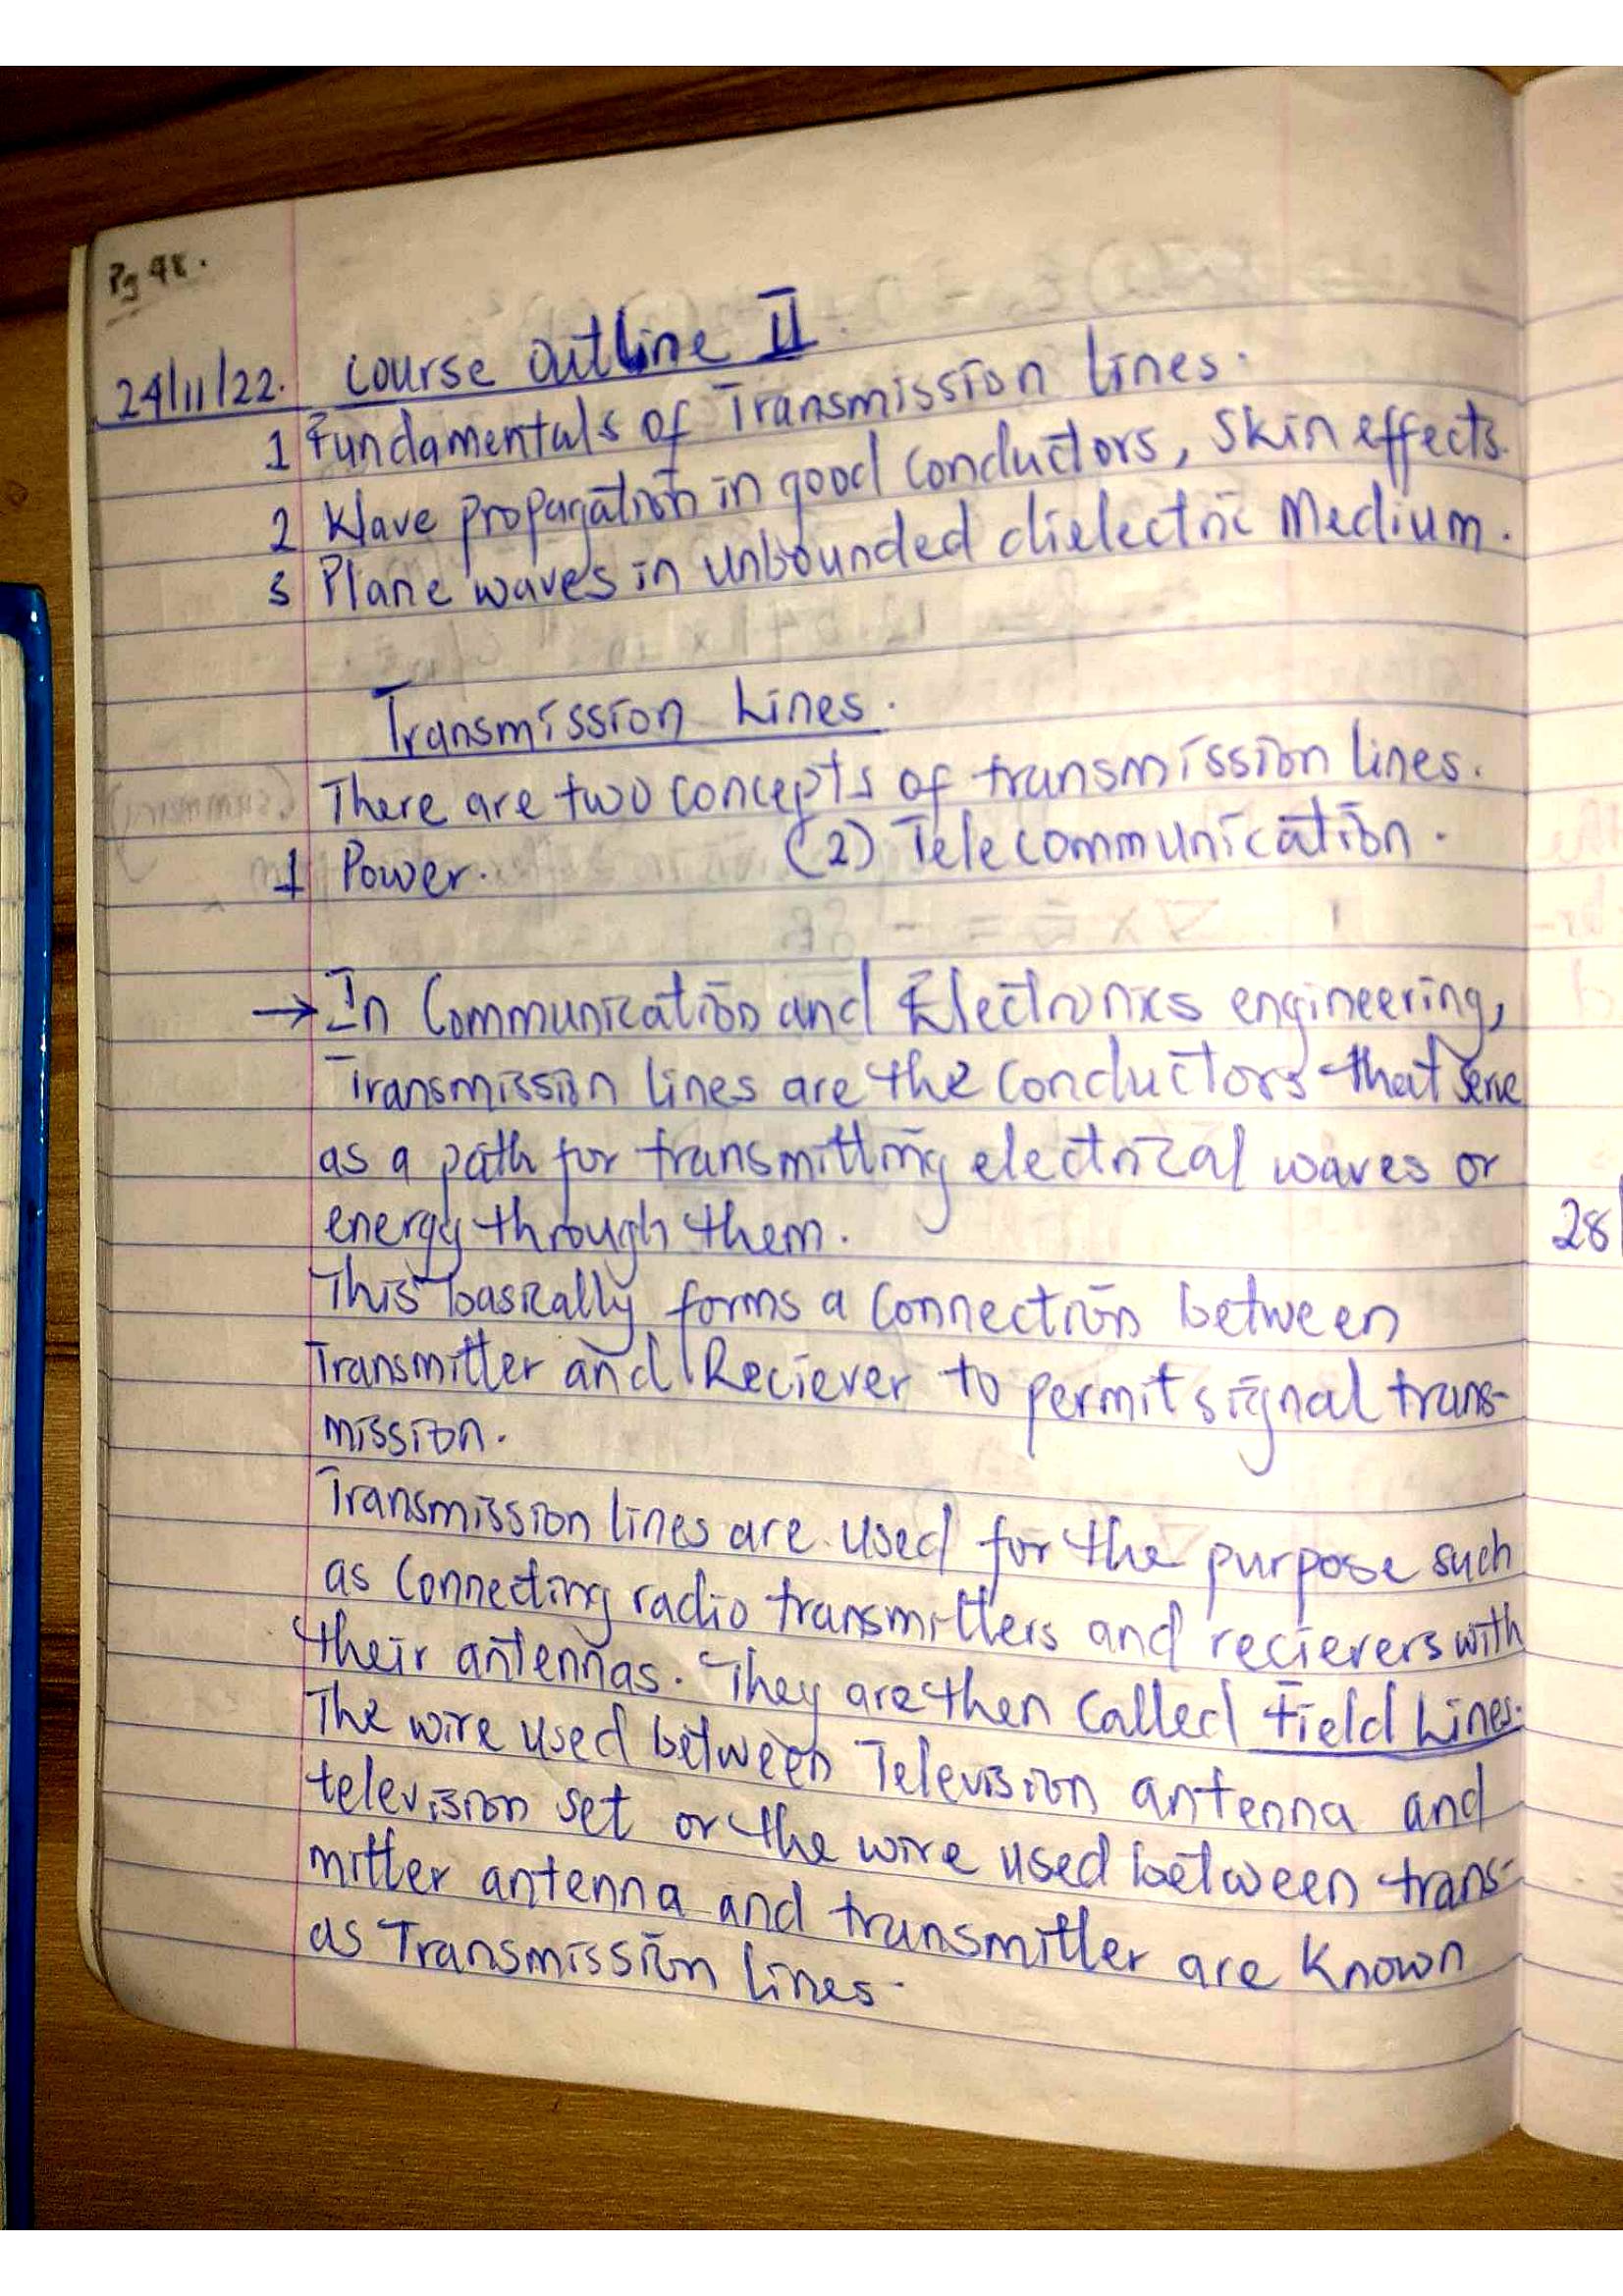 Pg 48.
24/11/22. Course Outline II.
1 Fundamentals of Transmission Lines.
2 Wave propagation in good conductors, Skin effects.
3 Plane waves in unbounded dielectric Medium.
Transmission Lines.
There are two concepts of transmission lines.
1 Power. (2) Telecommunication.
→ In Communication and Electronics engineering,
Transmission lines are the conductors that serve
as a path for transmitting electrical waves or
energy through them.
This basically forms a connection between
Transmitter and Reciever to permit signal trans-
mission.
Transmission lines are used for the purpose such
as connecting radio transmitters and recievers with
their antennas. They are then called Field Lines.
The wire used between Television antenna and
television set or the wire used between trans-
mitter antenna and transmitter are known
as Transmission lines.
28